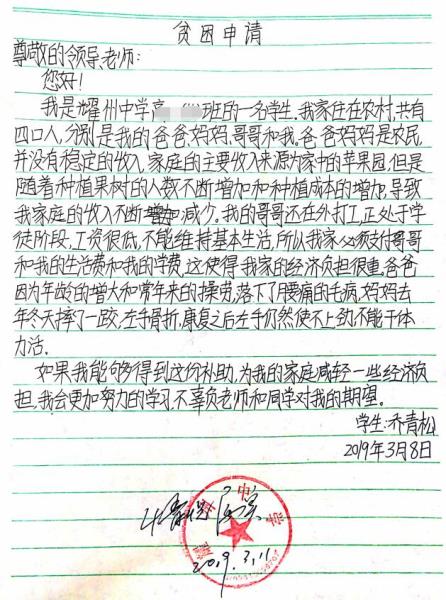 贫困申请
尊敬的领导、老师:
您好!
我是耀州中学高 班的一名学生.我家住在农村,共有
四口人,分别是我的爸爸、妈妈、哥哥和我。爸爸妈妈是农民,
并没有稳定的收入,家庭的主要收入来源为家中的苹果园,但是
随着种植果树的人数不断增加和种植成本的增加,导致
我家庭的收入不断减少。我的哥哥还在外打工,正处于学
徒阶段,工资很低,不能维持基本生活,所以我家必须支付哥哥
和我的生活费和我的学费,这使得我家的经济负担很重,爸爸
因为年龄的增大和常年来的操劳,落下了腰痛的毛病,妈妈去
年冬天摔了一跤,左手骨折,康复之后左手仍然使不上劲不能干体
力活.
如果我能够得到这份补助,为我的家庭减轻一些经济负
担,我会更加努力的学习,不辜负老师和同学对我的期望。
学生:乔青松
2019年3月8日
情况属实
2019.3.11